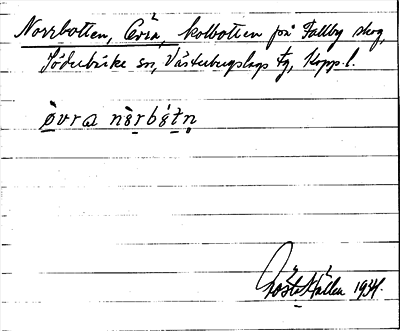 Norrbotten, Övra, kolbotten på Fallby skog,
Söderbärke sn, Västerbergslags tg, Kopp. l.
övra nörbötn
Gösta Källen 1934.